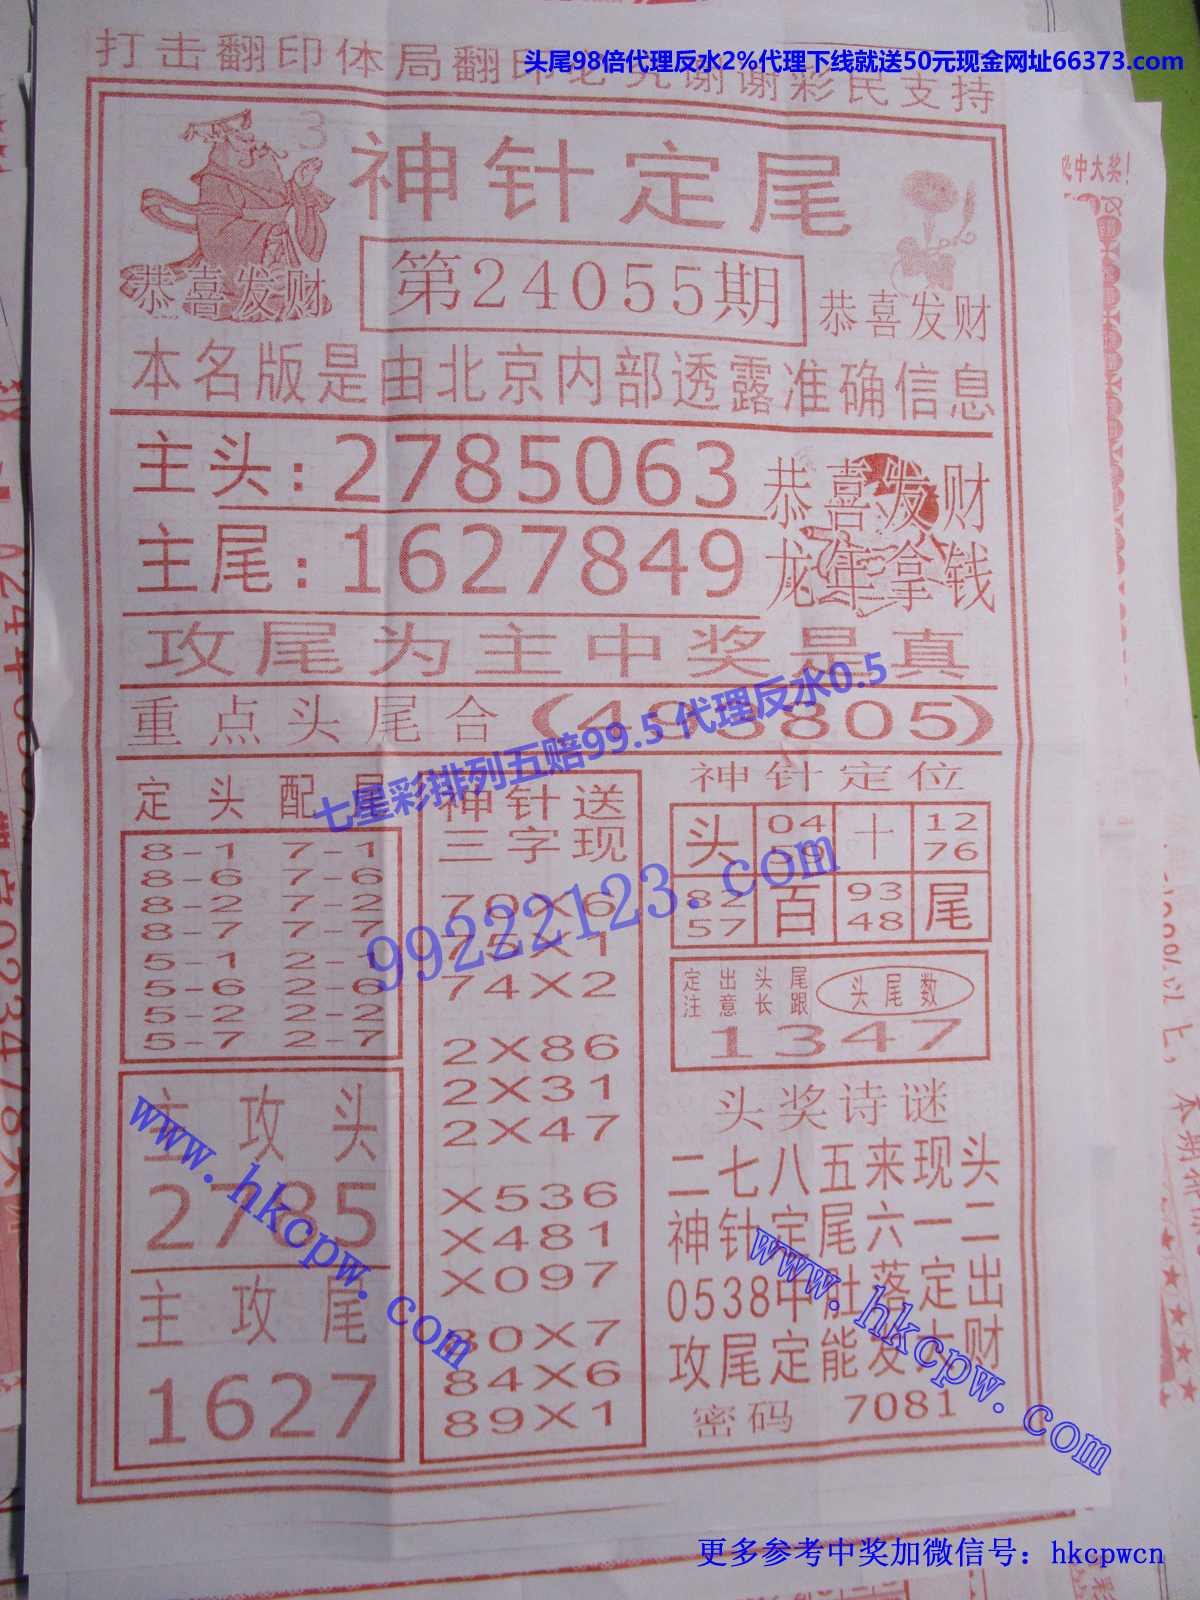 头尾98倍代理反水2%代理下线就送50元现金网址66373.com
打击翻印体局翻印必究谢谢彩民支持
3
神针定尾
恭喜发财
第24055期
恭喜发财
本名版是由北京内部透露准确信息
主头:2785063
恭喜发财
主尾:1627849
龙年拿钱
攻尾为主中奖是真
重点头尾合(493805)
七星彩排列五赔99.5 代理反水0.5
99222123.com
定头配尾
8-1 7-1
8-6 7-6
8-2 7-2
8-7 7-7
5-1 2-1
5-6 2-6
5-2 2-2
5-7 2-7
主攻头
2785
主攻尾
1627
神针送
三字现
70X6
75X1
74X2
2X86
2X31
2X47
X536
X481
X097
80X7
84X6
89X1
神针定位
头 04 十 12
59 76
82 百 93 尾
57 48
定出头尾
注意长跟
头尾数
1347
头奖诗谜
二七八五来现头
神针定尾六一二
0538中肚落定出
攻尾定能发大财
密码 7081
www.hkcpw.com
www.hkcpw.com
必中大奖!
更多参考中奖加微信号：hkcpwcn